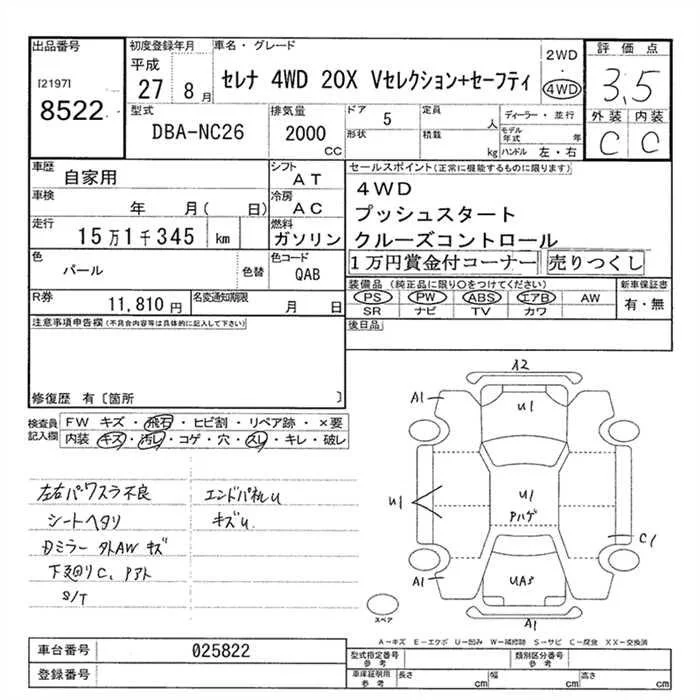 出品番号
[2197]
8522
初度登録年月
平成
27 8月
車名・グレード
セレナ 4WD 20X Vセレクション+セーフティ
2WD
・
4WD
評価点
3,5
外装 内装
C C
型式
DBA-NC26
排気量
2000
CC
ドア 5
形状
定員 人
積載 kg
ディーラー・並行
モデル年式 年
ハンドル 左・右
車歴
自家用
シフト
AT
車検
年 月( 日)
冷房
AC
走行
15万1千345 km
燃料
ガソリン
色
パール
色替
色コード
QAB
R券
11,810円
名変通知期限
月 日
セールスポイント(正常に機能するものに限ります)
4WD
プッシュスタート
クルーズコントロール
1万円賞金付コーナー 売りつくし
装備品 (純正品に限り○をつけてください)
PS PW ABS エアB AW
SR ナビ TV カワ
新車保証書
有・無
後日品
注意事項申告欄(不具合内容等は具体的に記入して下さい)
修復歴 有〔箇所 〕
検査員記入欄
FW キズ・飛石・ヒビ割・リペア跡・×要
内装・キズ・汚レ・コゲ・穴・スレ・キレ・破レ
左右パワスラ不良
シートヘタリ
Dミラー 外AW キズ
下廻りC、Pアト
S/T
エンドパネルU
キズU
A2
A1
U1
U1
U1
Pハゲ
C1
A1
UA3
A1
スペア
A−キズ E−エクボ U−凹み W−補修跡 S−サビ C−腐食 XX−交換済
車台番号
025822
登録番号
型式指定番号
参考
類別区分番号
参考
車庫証明用
参考
長さ cm
幅 cm
高さ cm